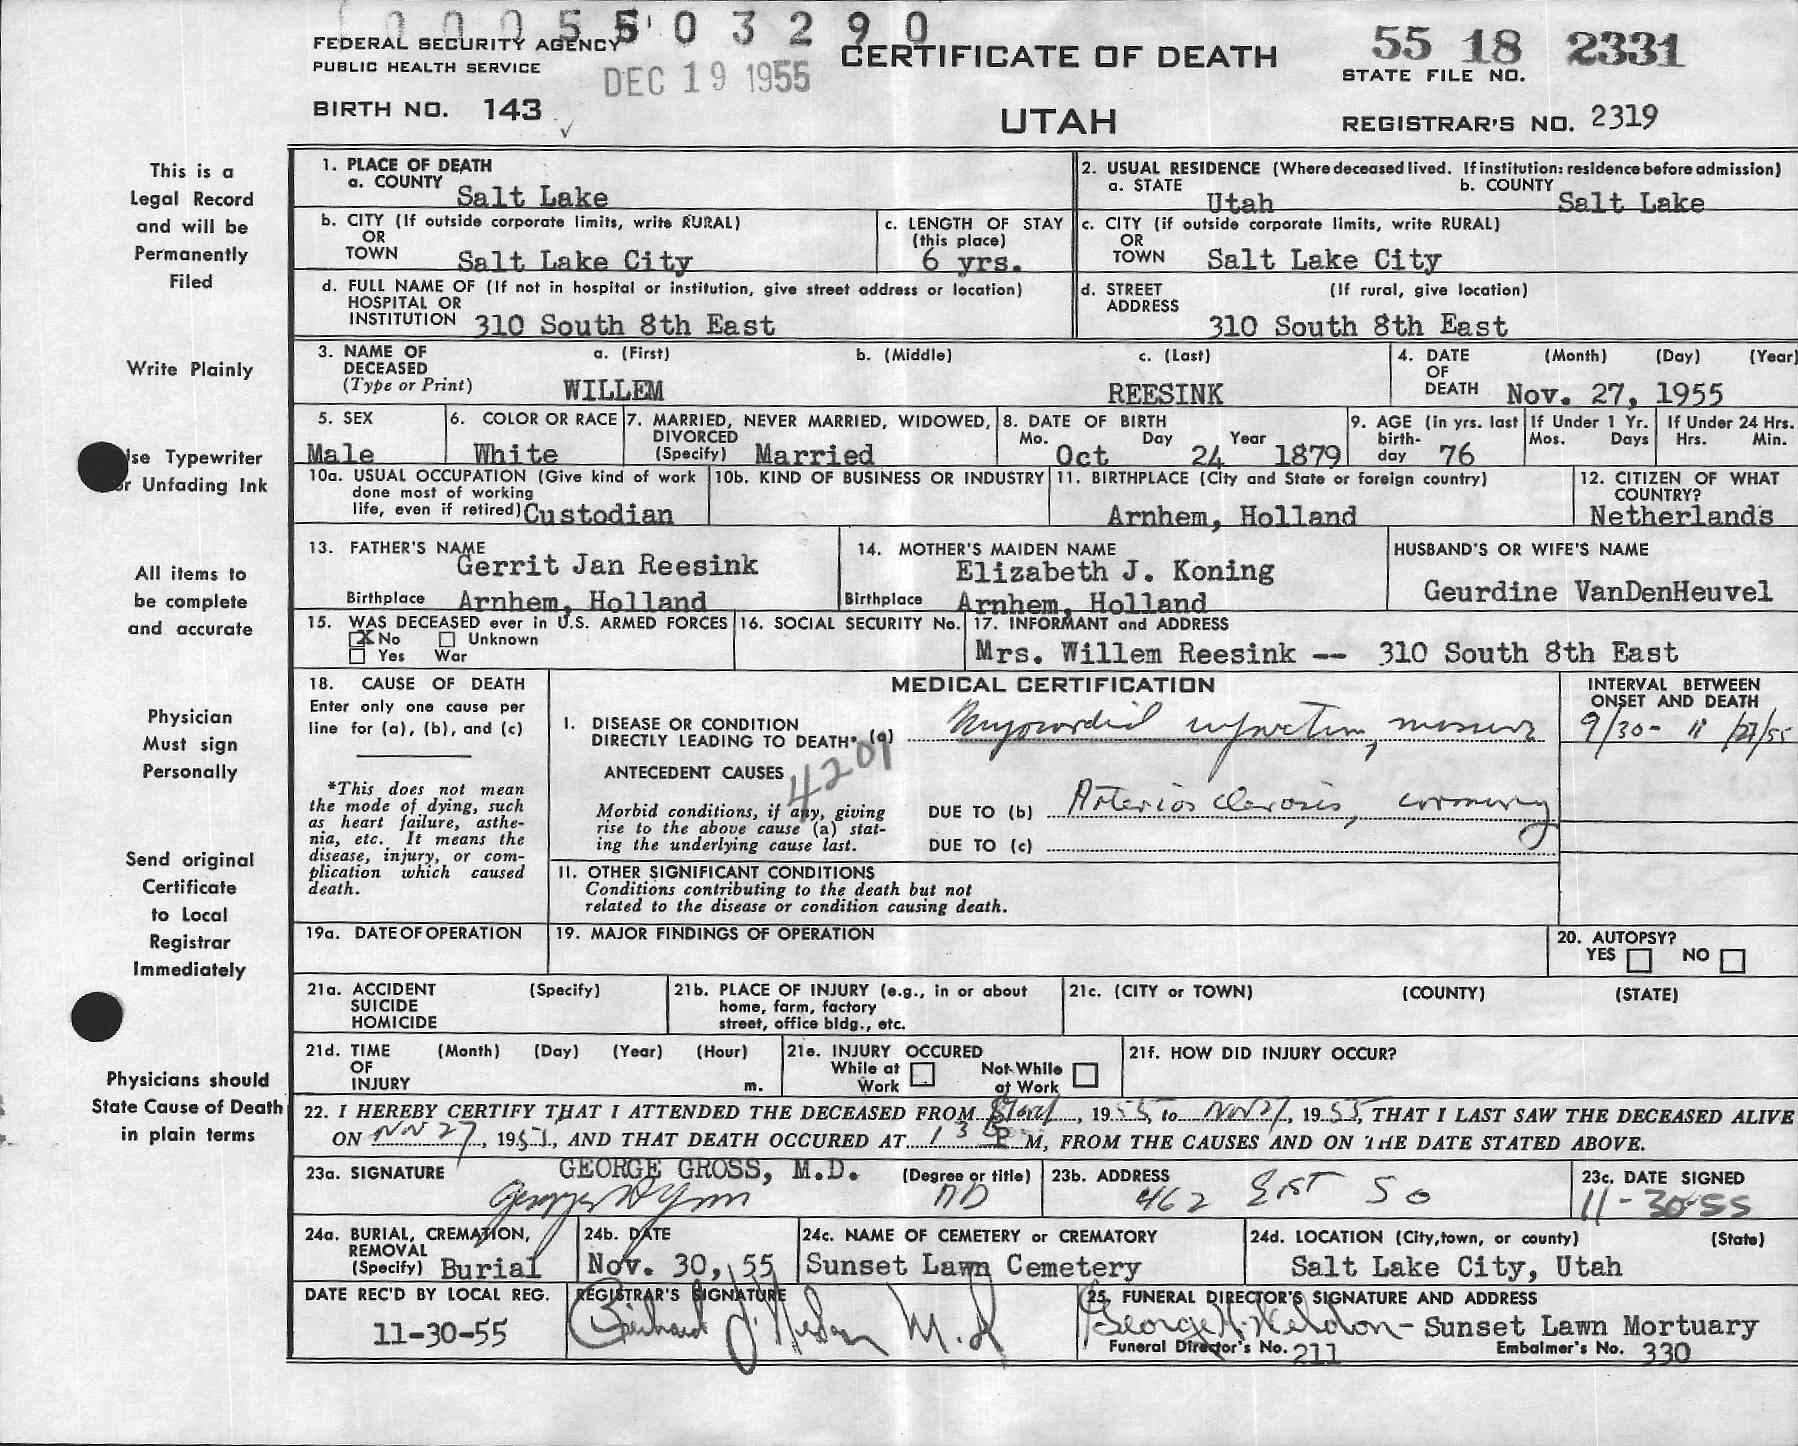 0 0 0 5 5 0 3 2 9 0
FEDERAL SECURITY AGENCY
PUBLIC HEALTH SERVICE
DEC 19 1955
CERTIFICATE OF DEATH
55 18 2331
STATE FILE NO.
BIRTH NO. 143
UTAH
REGISTRAR'S NO. 2319
This is a
Legal Record
and will be
Permanently
Filed
Write Plainly
Use Typewriter
or Unfading Ink
All items to
be complete
and accurate
Physician
Must sign
Personally
Send original
Certificate
to Local
Registrar
Immediately
Physicians should
State Cause of Death
in plain terms
1. PLACE OF DEATH
a. COUNTY Salt Lake
2. USUAL RESIDENCE (Where deceased lived. If institution: residence before admission)
a. STATE Utah b. COUNTY Salt Lake
b. CITY (If outside corporate limits, write RURAL)
OR
TOWN Salt Lake City
c. LENGTH OF STAY
(this place)
6 yrs.
c. CITY (if outside corporate limits, write RURAL)
OR
TOWN Salt Lake City
d. FULL NAME OF (If not in hospital or institution, give street address or location)
HOSPITAL OR
INSTITUTION 310 South 8th East
d. STREET (If rural, give location)
ADDRESS
310 South 8th East
3. NAME OF DECEASED
(Type or Print)
a. (First) b. (Middle) c. (Last)
WILLEM REESINK
4. DATE OF DEATH (Month) (Day) (Year)
Nov. 27, 1955
5. SEX
Male
6. COLOR OR RACE
White
7. MARRIED, NEVER MARRIED, WIDOWED,
DIVORCED
(Specify) Married
8. DATE OF BIRTH
Mo. Day Year
Oct 24 1879
9. AGE (in yrs. last
birth-
day 76
If Under 1 Yr.
Mos. Days
If Under 24 Hrs.
Hrs. Min.
10a. USUAL OCCUPATION (Give kind of work
done most of working
life, even if retired) Custodian
10b. KIND OF BUSINESS OR INDUSTRY
11. BIRTHPLACE (City and State or foreign country)
Arnhem, Holland
12. CITIZEN OF WHAT
COUNTRY?
Netherlands
13. FATHER'S NAME
Gerrit Jan Reesink
Birthplace Arnhem, Holland
14. MOTHER'S MAIDEN NAME
Elizabeth J. Koning
Birthplace Arnhem, Holland
HUSBAND'S OR WIFE'S NAME
Geurdine VanDenHeuvel
15. WAS DECEASED ever in U.S. ARMED FORCES
X No Unknown
Yes War
16. SOCIAL SECURITY No.
17. INFORMANT and ADDRESS
Mrs. Willem Reesink -- 310 South 8th East
18. CAUSE OF DEATH
Enter only one cause per
line for (a), (b), and (c)
*This does not mean
the mode of dying, such
as heart failure, asthe-
nia, etc. It means the
disease, injury, or com-
plication which caused
death.
MEDICAL CERTIFICATION
INTERVAL BETWEEN
ONSET AND DEATH
I. DISEASE OR CONDITION
DIRECTLY LEADING TO DEATH* (a) Myocardial infarction, massive
9/30- 11/27/55
4201
ANTECEDENT CAUSES
Morbid conditions, if any, giving
rise to the above cause (a) stat-
ing the underlying cause last.
DUE TO (b) Arteriosclerosis, coronary
DUE TO (c)
11. OTHER SIGNIFICANT CONDITIONS
Conditions contributing to the death but not
related to the disease or condition causing death.
19a. DATE OF OPERATION
19. MAJOR FINDINGS OF OPERATION
20. AUTOPSY?
YES NO
21a. ACCIDENT (Specify)
SUICIDE
HOMICIDE
21b. PLACE OF INJURY (e.g., in or about
home, farm, factory
street, office bldg., etc.
21c. (CITY or TOWN) (COUNTY) (STATE)
21d. TIME (Month) (Day) (Year) (Hour)
OF
INJURY m.
21e. INJURY OCCURED
While at Work Not While at Work
21f. HOW DID INJURY OCCUR?
22. I HEREBY CERTIFY THAT I ATTENDED THE DECEASED FROM , 1955 to Nov 27, 1955, THAT I LAST SAW THE DECEASED ALIVE
ON Nov 27, 1955, AND THAT DEATH OCCURED AT P M, FROM THE CAUSES AND ON THE DATE STATED ABOVE.
23a. SIGNATURE GEORGE GROSS, M.D. (Degree or title)
MD
23b. ADDRESS
462 East So
23c. DATE SIGNED
11-30-55
24a. BURIAL, CREMATION,
REMOVAL
(Specify) Burial
24b. DATE
Nov. 30, 55
24c. NAME OF CEMETERY or CREMATORY
Sunset Lawn Cemetery
24d. LOCATION (City, town, or county) (State)
Salt Lake City, Utah
DATE REC'D BY LOCAL REG.
11-30-55
REGISTRAR'S SIGNATURE
M.D.
25. FUNERAL DIRECTOR'S SIGNATURE AND ADDRESS
Sunset Lawn Mortuary
Funeral Director's No. 211 Embalmer's No. 330